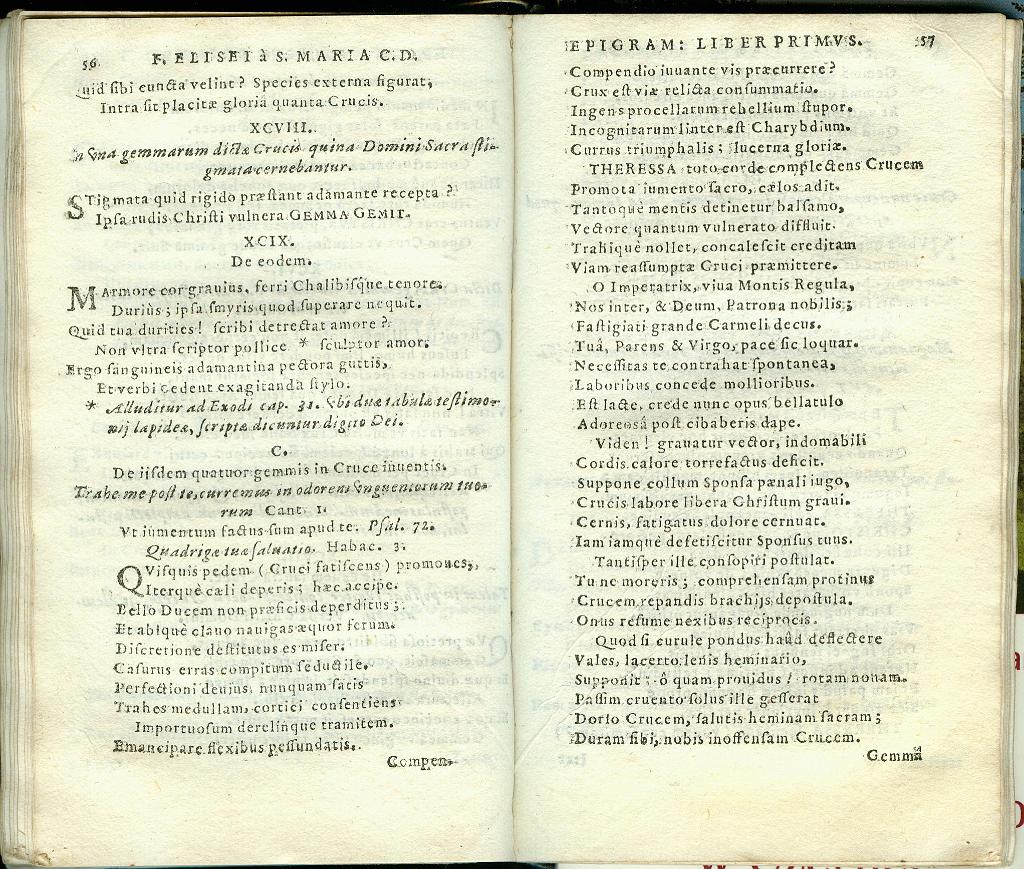 56 F. ELISEI à S. MARIA C.D.
Quid sibi cuncta velint? Species externa figurat,
Intra sit placitæ gloria quanta Crucis.
XCVIII.
In vna gemmarum dictæ Crucis quina Domini Sacra sti-
gmata cernebantur.
STigmata quid rigido præstant adamante recepta?
Ipsa rudis Christi vulnera GEMMA GEMIT.
XCIX.
De eodem.
MArmore cor grauius, ferri Chalibisque tenore.
Durius; ipsa smyris quod superare nequit.
Quid tua durities! scribi detrectat amore?
Non vltra scriptor pollice * sculptor amor.
Ergo sanguineis adamantina pectora guttis,
Et verbi cedent exagitanda stylo.
* Alluditur ad Exodi cap. 31. vbi duæ tabulæ testimo-
nij lapideæ, scriptæ dicuntur digito Dei.
C.
De iisdem quatuor gemmis in Cruce inuentis.
Trahe me post te, curremus in odorem vnguentorum tuo-
rum Cant. 1.
Vt iumentum factus sum apud te. Psal. 72.
Quadrigæ tuæ saluatio. Habac. 3.
QVisquis pedem (Cruci fatiscens) promoues,
Iterquè cæli deperis; hæc accipe.
Bello Ducem non præficis deperditus;
Et absquè clauo nauigas æquor ferum.
Discretione destitutus es miser.
Casurus erras compitum seductile.
Perfectioni deuius, nunquam satis
Trahes medullam, cortici consentiens
Importuosum derelinque tramitem.
Emancipare flexibus pessundatis.
Compen-
EPIGRAM: LIBER PRIMVS. 57
Compendio iuuante vis præcurrere?
Crux est viæ relicta consummatio.
Ingens procellarum rebellium stupor.
Incognitarum linter est Charybdium.
Currus triumphalis; lucerna gloriæ.
THERESSA toto corde complectens Crucem
Promota iumento sacro, cælos adit.
Tantoquè mentis detinetur balsamo,
Vectore quantum vulnerato diffluit.
Trahiquè nollet, concalescit creditam
Viam reassumptæ Cruci præmittere.
O Imperatrix, viua Montis Regula,
Nos inter, & Deum, Patrona nobilis;
Fastigiati grande Carmeli decus.
Tuâ, Parens & Virgo, pace sic loquar.
Necessitas te contrahat spontanea,
Laboribus concede mollioribus.
Est lacte, crede nunc opus bellatulo
Adoreosâ post cibaberis dape.
Viden! grauatur vector, indomabili
Cordis calore torrefactus deficit.
Suppone collum Sponsa pænali iugo,
Crucis labore libera Christum graui.
Cernis, fatigatus dolore cernuat.
Iam iamquè defetiscitur Sponsus tuus.
Tantisper ille consopiri postulat.
Tu ne moreris; comprehensam protinus
Crucem repandis brachijs depostula.
Onus resume nexibus reciprocis.
Quod si curule pondus haùd deflectere
Vales, lacerto lenis heminario,
Supponit; ô quam prouidus! rotam nouam.
Passim cruento solus ille gesserat
Dorso Crucem, salutis heminam sacram;
Duram sibi, nobis inoffensam Crucem.
Gemma